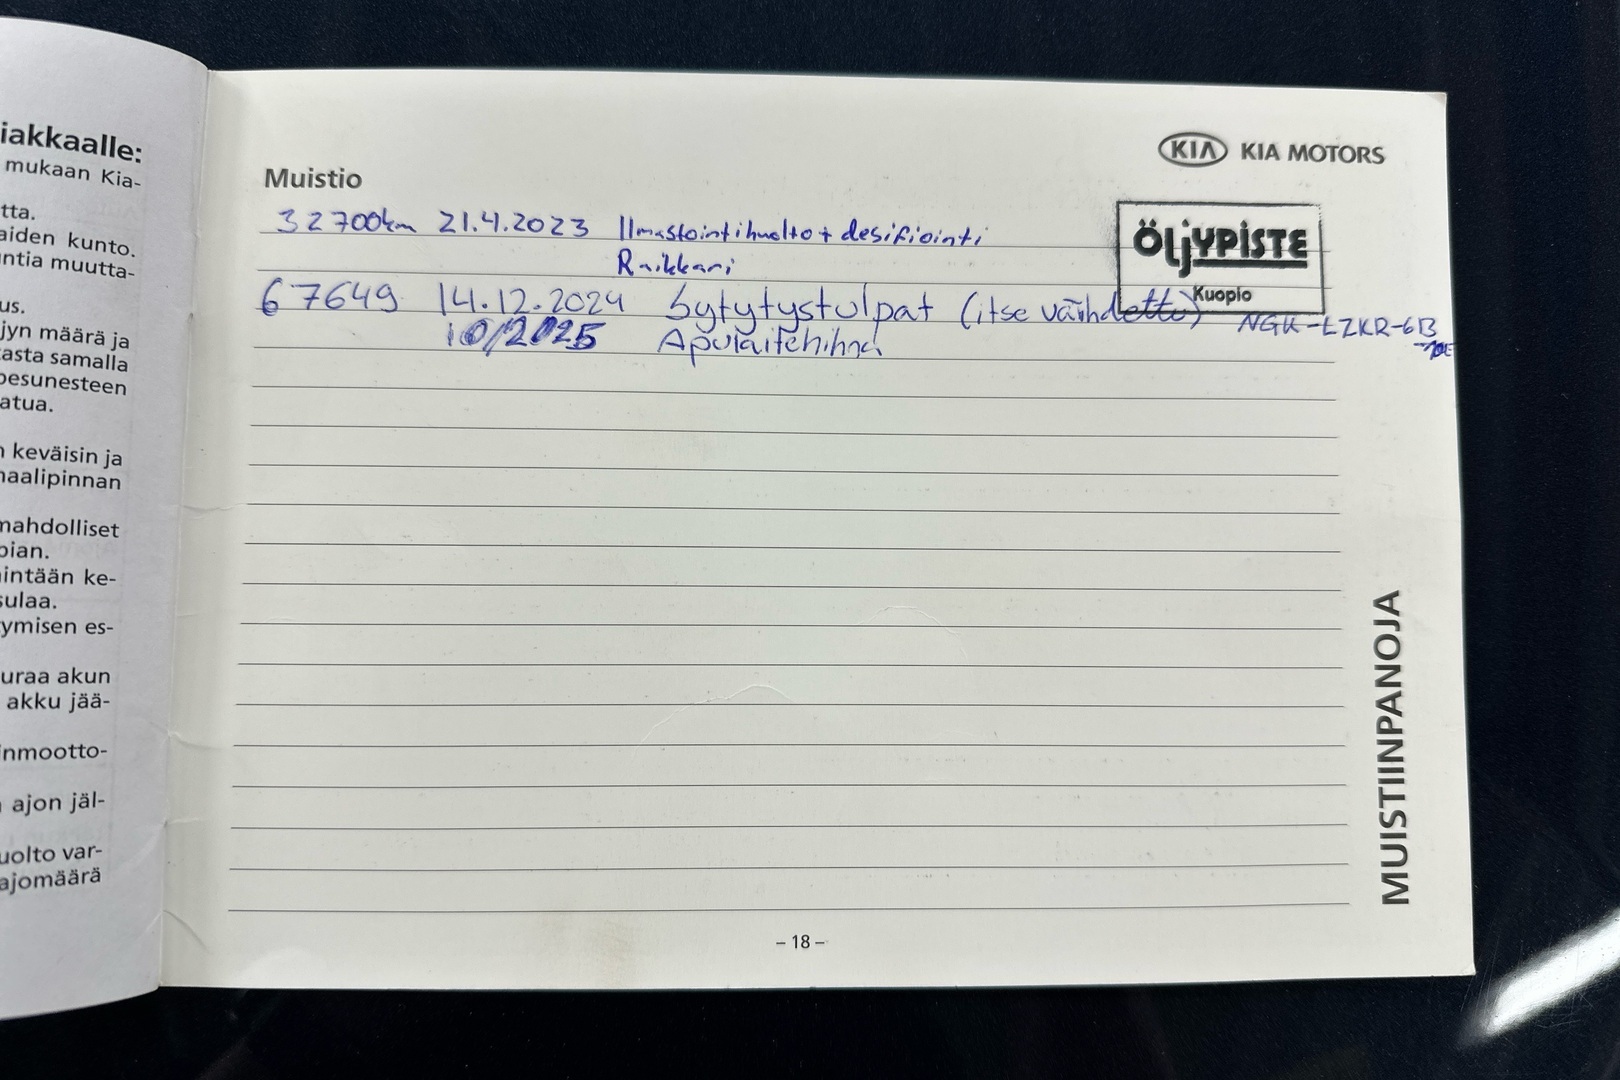 iakkaalle:
mukaan Kia-
tta.
aiden kunto.
ntia muutta-
us.
jyn määrä ja
tasta samalla
pesunesteen
atua.
n keväisin ja
naalipinnan
mahdolliset
pian.
intään ke-
sulaa.
ymisen es-
uraa akun
akku jää-
inmootto-
ajon jäl-
uolto var-
ajomäärä
KIA KIA MOTORS
Muistio
32700km 21.4.2023 Ilmastointihuolto + desifiointi
Raikkari
ÖljYPISTE
Kuopio
67649 14.12.2024 Sytytystulpat (itse vaihdettu) NGK-LZKR-6B
10E
10/2025 Apulaitehihna
MUISTIINPANOJA
– 18 –